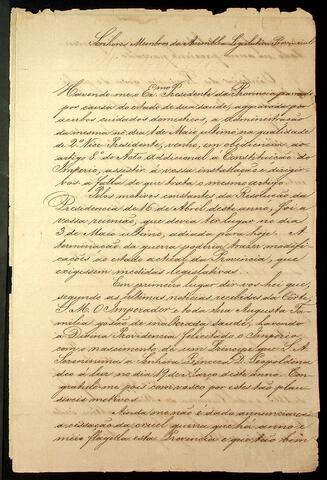 Senhores Membros da Assemblea Legislativa Provincial
Havendo-me o Exmo Presidente da Provincia passado
por causa do estado de sua saude, aggravada por
acerbos cuidados domesticos, a Administração
da mesma no dia 1 de Maio ultimo na qualidade
de 2º Vice Presidente, venho, em obediencia ao
artigo 8º do Acto Addicional a Constituição do
Imperio, assistir á vossa installação e dirigir
vos a falla de que trata o mesmo artigo.
Pelos motivos constantes da Resolução da
Presidencia de 16 de Abril deste anno, foi a
vossa reunião, que devia ter lugar no dia
3 de Maio ultimo, adiada para hoje. A
terminação da guerra poderia trazer modifi-
cações ao estado actual da Provincia, que
exigissem medidas legislativas.
Em primeiro lugar dir-vos-hei que,
segundo as ultimas noticias recebidas da Côrte,
S. M. O Imperador e toda Sua Augusta Fa-
milia gosão de inalterada saude, havendo
a Divina Providencia felicitado o Imperio
com o nascimento de um Principe que S. A.
Serenissima a Senhora Princeza D. Leopoldina
deo á luz no dia 19 de Março deste anno. Con-
gratulo-me pois com vosco por este tão plau-
sivel motivo.
Ainda me não é dado annunciar-vos
a cessação da cruel guerra que ha anno e
meio flagella esta Provincia e que tão bem